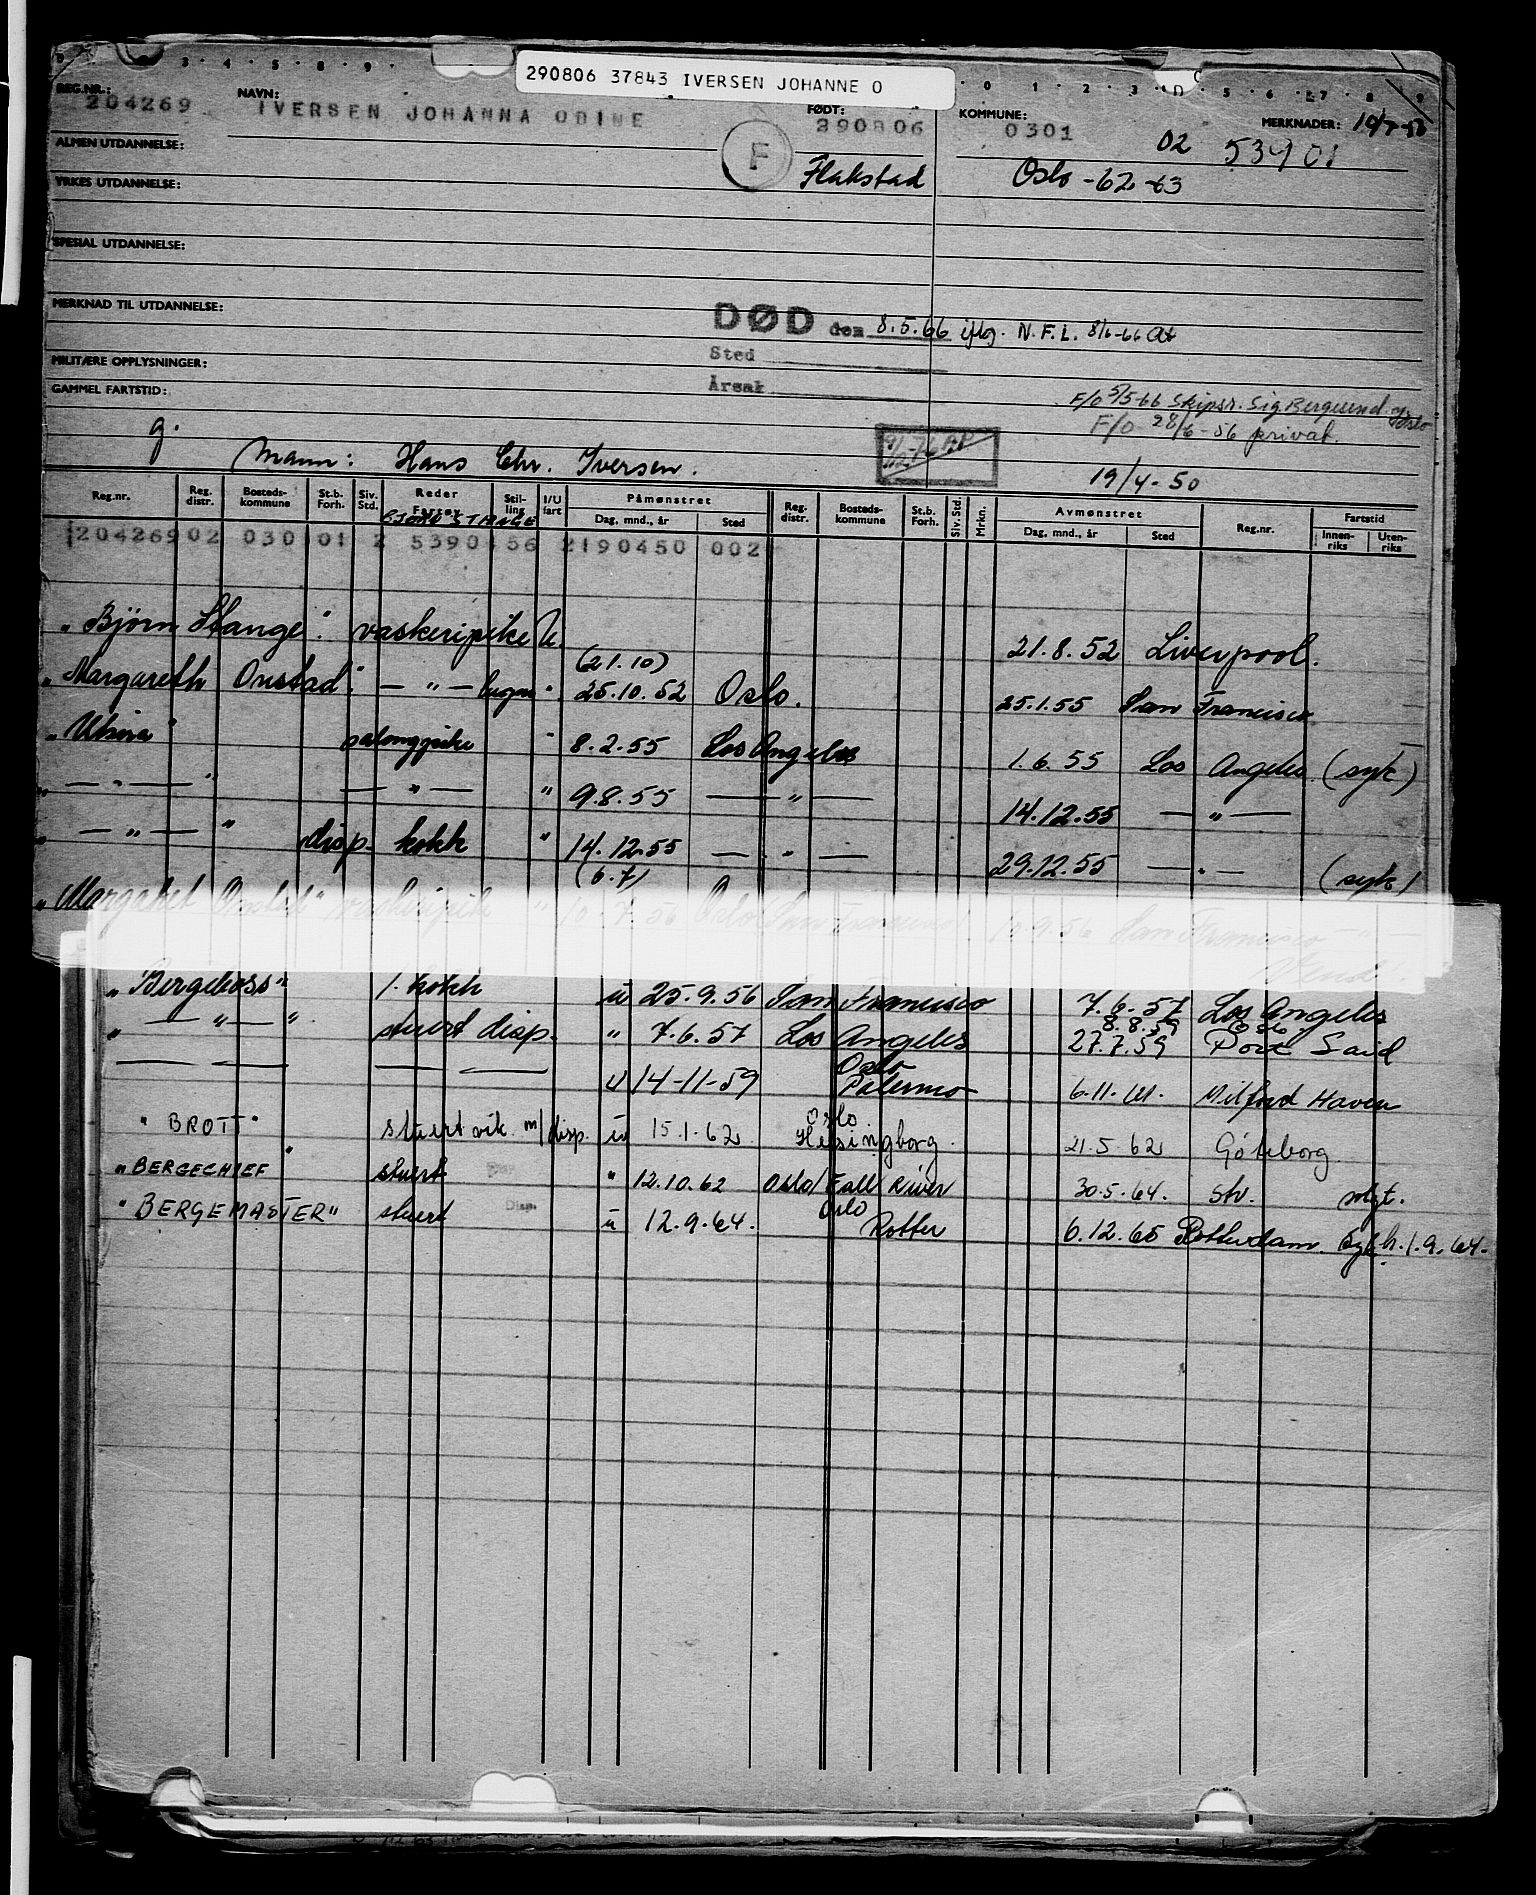 290806 37843 IVERSEN JOHANNE O
REG.NR.: 204269 NAVN: IVERSEN JOHANNA ODINE FØDT: 290806 KOMMUNE: 0301 02 53901 MERKNADER:
F Flakstad Oslo -62-63
ALMEN UTDANNELSE:
YRKES UTDANNELSE:
SPESIAL UTDANNELSE:
MERKNAD TIL UTDANNELSE:
DØD den 8.5.66 iflg. N.F.L. 8/6-66 At
Sted
MILITÆRE OPPLYSNINGER:
Årsak
GAMMEL FARTSTID:
F/O 5/5-66 Skipsr. Sig Bergesend.y Oslo
F/O 28/6-56 privat.
g.
Mann: Hans Chr. Iversen.
19/4-50
Reg.nr. Reg. distr. Bosteds-kommune St.b. Forh. Siv. Std. Reder Fartøy Stil-ling I/U fart Påmønstret Dag, mnd., år Sted Reg. distr. Bosteds-kommune St.b. Forh. Siv. Std. Mrkn. Avmønstret Dag, mnd., år Sted Reg.nr. Fartstid Innen-riks Uten-riks
BJØRN STANGE
204269 02 030 01 2 5390 56 2190450 002
"Bjørn Stange" vaskeripike U. 21.8.52 Liverpool.
(21.10)
"Margareth Onstad" — " — " 25.10.52 Oslo. 25.1.55 San Francisco
"Vhire" salongpike " 8.2.55 Los Angeles 1.6.55 Los Angeles (syk)
" — " — " — " — " 9.8.55 — " — 14.12.55 — " —
" — " — " disp. kokk " 14.12.55 — " — 29.12.55 — " — (syk)
(6.7)
"Margaret Onstad" vaskeripike " 10.7.56 Oslo (San Francisco) 10.9.56 San Francisco — " —
"Bergeboss" 1. kokk u 25.9.56 San Francisco 7.6.57 Los Angeles
8.8.59 Oslo
" — " — " stuert disp. " 7.6.57 Los Angeles 27.7.59 Port Said
Oslo
— — — — U 14-11-59 Palermo 6.11.61. Milford Haven
Oslo
"BROTT" stuert vik. m/disp. u 15.1.62 Helsingborg. 21.5.62 Göteborg.
"BERGECHIEF" stuert " 12.10.62 Oslo/Fall River 30.5.64. Stv. solgt.
Oslo
"BERGEMASTER" stuert Disp. u 12.9.64. Rotter 6.12.65 Rotterdam. Sykh. 1.9.64.